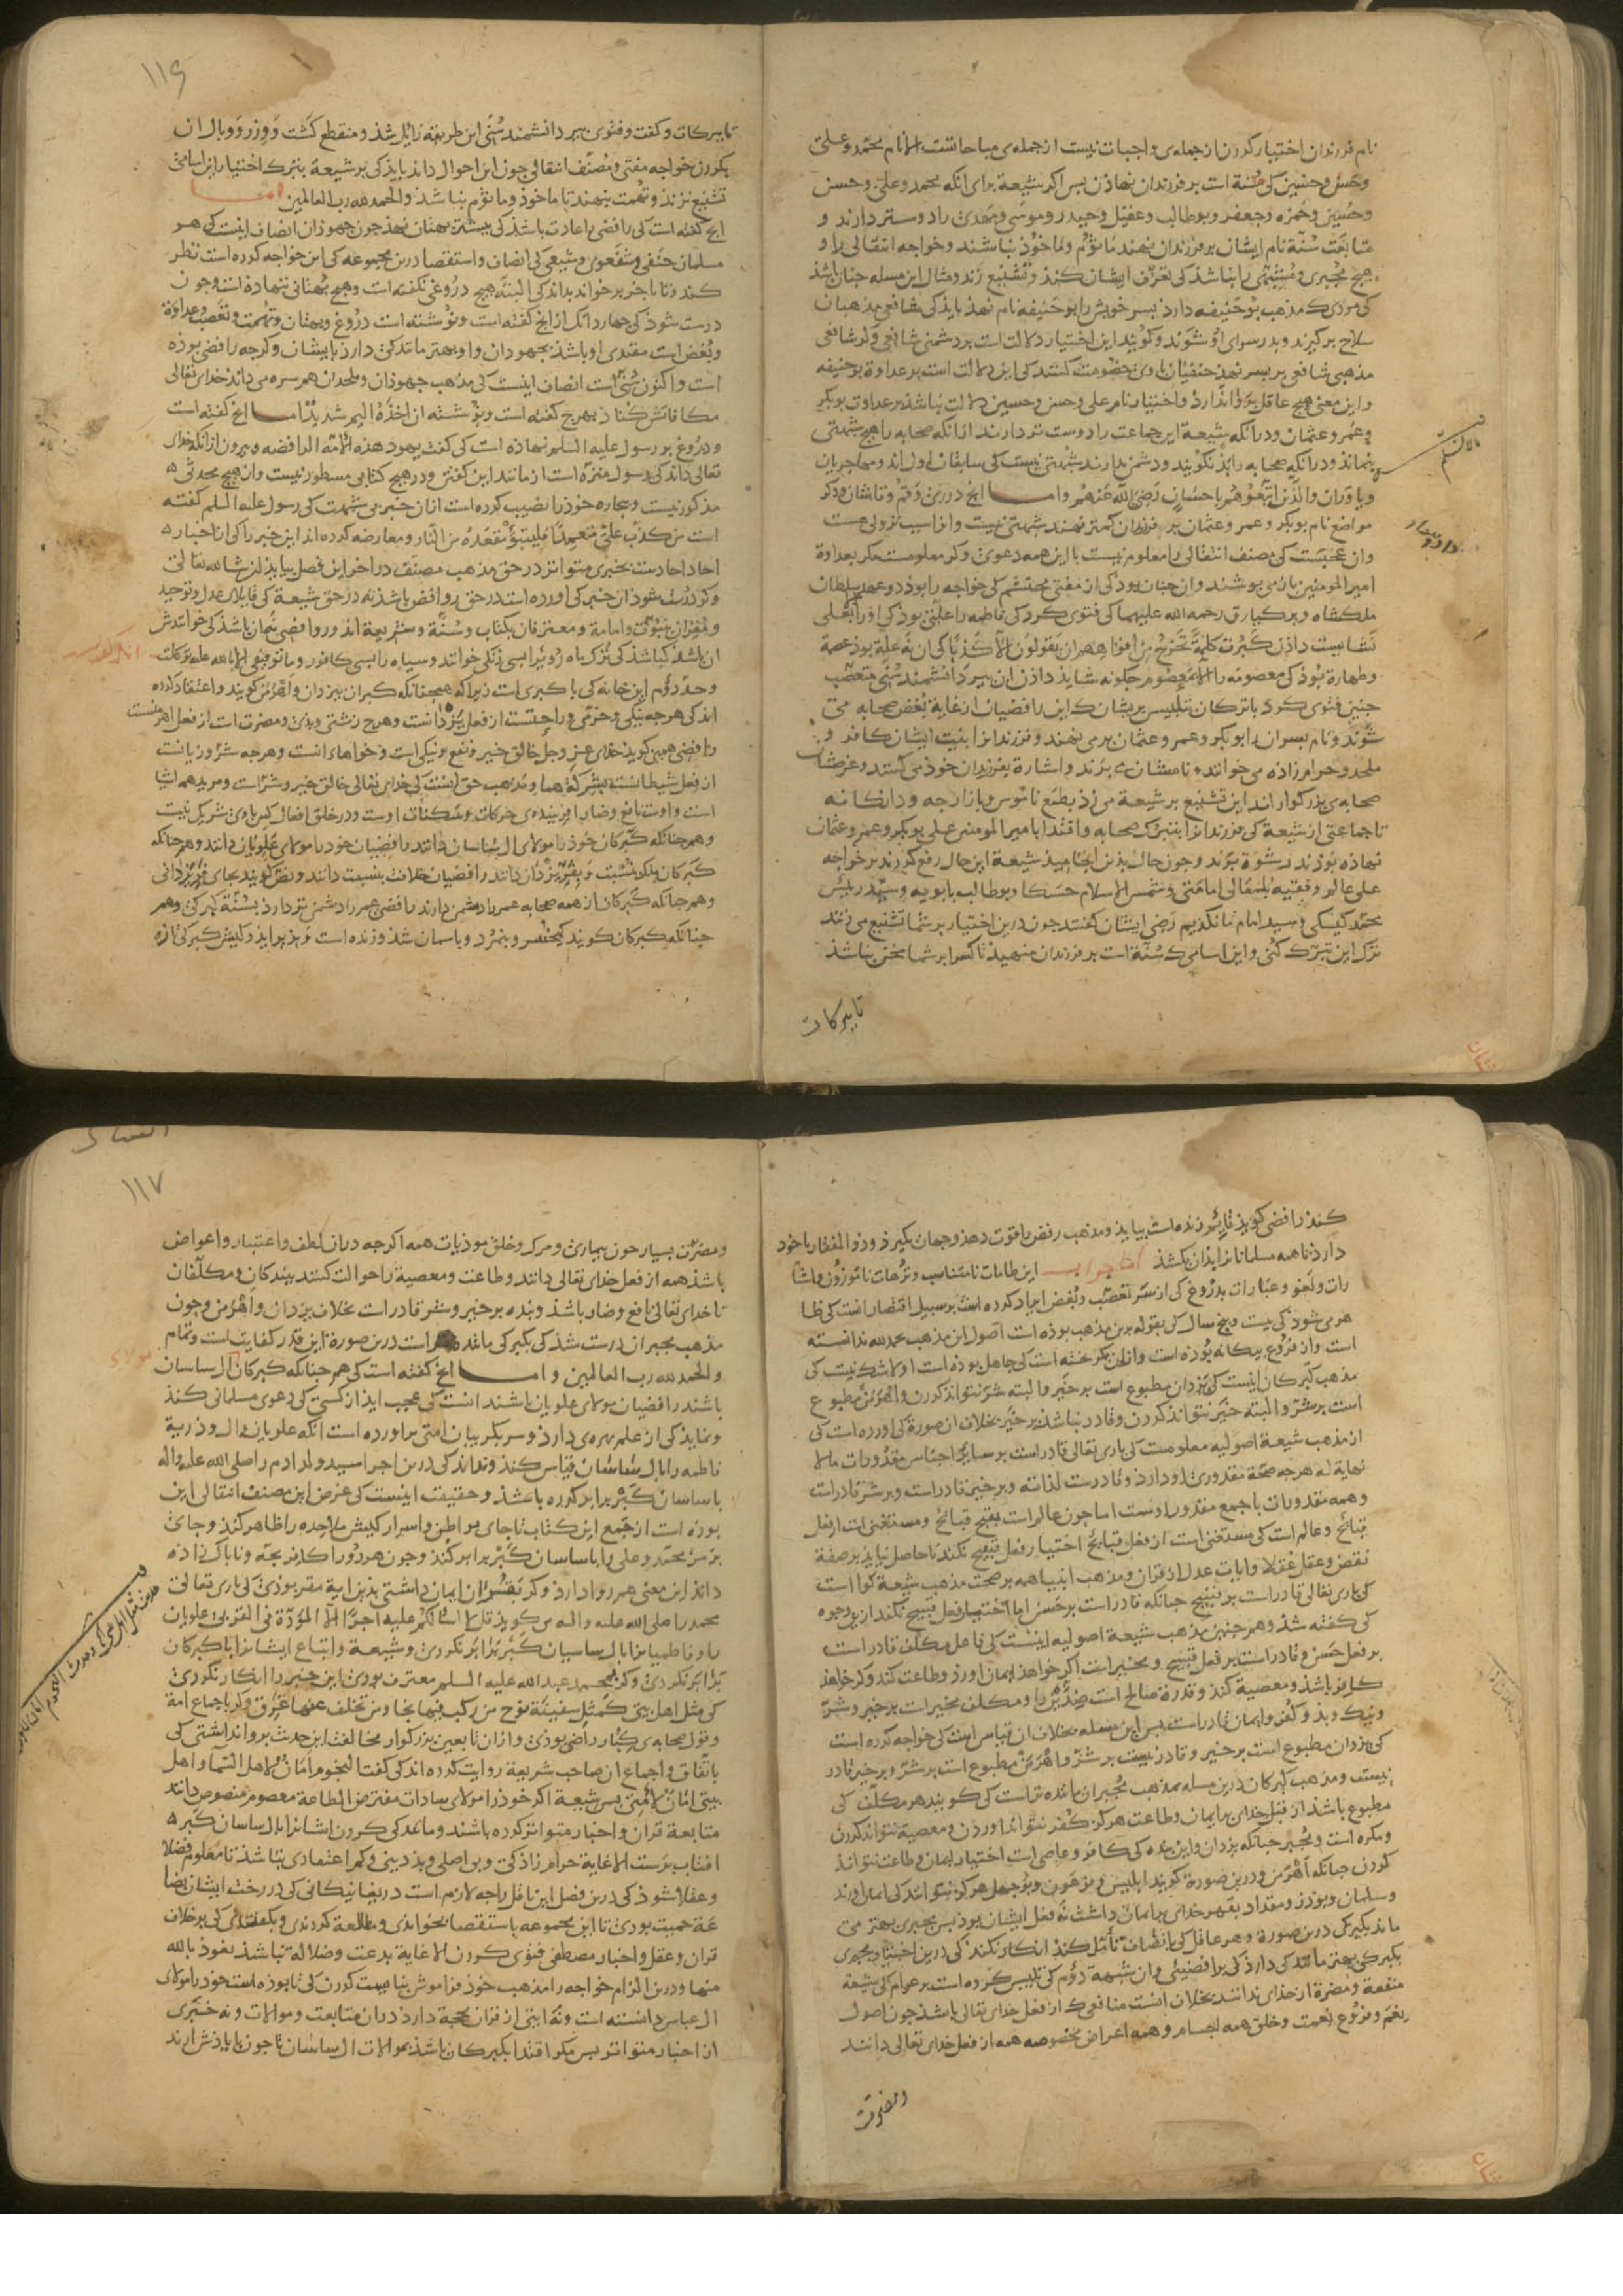 نام فرزندان اختیار کردن از جمله‌ی واجبات نیست از جمله‌ی مباحاتست الا نام محمد و علی
و حسن و حسین کی سنة است بر فرزندان نهادن پس اکر شیعة برای آنکه محمد و علی و حسن
و حسین و حمزه و جعفر و بوطالب و عقیل و حیدر و موسی و مهدی را دوستر دارند و
متابعت سنة نام ایشان بر فرزندان نهند مأثوم و مأخوذ نباشند و خواجه انتقالی را و
هیچ مجبری و مشبهی را نباشد کی تعرف ایشان کند و تشنیع زند و مثال این مسله چنان باشد
کی مردی که مذهب بوحنیفه دارد پسر خویش را بوحنیفه نام نهد باید کی شافعی مذهبان
سلاح برکیرند و بدر سرای او شوند و کویند این اختیار دلالت است بر دشمنی شافعی و کر شافعی
مذهبی شافعی بر پسر نهد حنفیان با وی خصومت کنند کی این دلالت است بر عداوة بوحنیفه
و این معنی هیچ عاقل روا ندارد و اختیار نام علی و حسن و حسین دلالت نباشد بر عداوت بوبکر
و عمر و عثمان و در آنکه شیعة این جماعت را دوست تر دارند از آنکه صحابه را هیچ شبهتی
بنماند و در آنکه صحابه را بد نکویند و دشمن ندارند شبهتی نیست کی سابقان اول‌اند و مهاجریان
و یاوران والذین اتبعوهم باحسان رضی الله عنهم و اما آنچ در ری و قم و قاشان و دکر
مواضع نام بوبکر و عمر و عثمان بر فرزندان کمتر نهند شبهتی نیست و از اسب نزولی هست
و آن عجبست کی مصنف انتقالی را معلوم نیست با این همه دعوی و کر معلومست مکر بعداوة
امیر المومنین باز می‌پوشند و آن چنان بود کی از مفتی محتشم کی خواجه را بود در عهد سلطان
ملکشاه و برکیارق رحمه الله علیهما کی فتوی کرد کی فاطمه را علتی بود کی او را بعلی
نشایست دادن کبرت کلمة تخرج من افواههم ان یقولون الا کذبا کی آن نه علة بود عصمة
و طهارة بود کی معصومه را الا بمعصوم چکونه شاید دادن آن پیر دانشمند سنی متعصب
چنین فتوی کرد با ترکان بتلبیس بریشان که این رافضیان از غایة بغض صحابه می
شوند و نام پسران را بوبکر و عمر و عثمان بر می نهند و فرزندانرا بنیت ایشان کافر و
ملحد و حرام زاده می خوانند و نامشان می برند و اشارة بفرزندان خود می کنند و غرضشان
صحابه‌ی بزرکوار اند این تشنیع بر شیعة می زد بطمع ناموس و بازارچه و دانکانه
تا جماعتی از شیعة کی فرزندانرا بتبرک صحابه و اقتدا بامیر المومنین علی بوبکر و عمر و عثمان
نهاده بودند رشوة بردند و چون حال بدین انجامید شیعة این حال رفع کردند بر خواجه
علی عالم و فقیه بلمعالی امامتی و شمس الاسلام حسکا و بوطالب بابویه و سید رئیس
محمد کیسکی و سید امام مانکدیم رضی ایشان کفتند چون درین اختیار بر شما تشنیع می زنند
ترک این تبرک کنی و این اسامی که سنة است بر فرزندان منهید تا کس را بر شما سخن نباشد
تا ببرکات
۱۱۶
تا ببرکات و کفت و فتوی پیر دانشمند سنی این طریقه زایل شد و منقطع کشت و وزر و وبال آن
بکردن خواجه مفتی و مصنف انتقالی چون این احوال داند باید کی بر شیعة بترک اختیار این اسامی
تشنیع نزند و تهمت ننهد تا ماخوذ و ماثوم نباشد والحمد لله رب العالمین اما
آنچ کفته است کی رافضی را عادت باشد کی پیشتر بهتان نهد چون جهودان انصاف اینست کی هر
مسلمان حنفی و شفعوی و شیعی کی انصاف و استقصا درین مجموعه کی این خواجه کرده است نظر
کند و تا بآخر برخواند بداند کی البته هیچ دروغی نکفته است و هیچ بهتانی ننهاده است و چون
درست شود کی چهاردانک از آنچ کفته است و نوشته است دروغ و بهتان و تهمت و تعصب و عداوة
و بغض است مقتدی او باشد بجهودان و او بهتر ماند کی دارد بایشان و کرچه رافضی بوده
است و اکنون سنی است انصاف اینست کی مذهب جهودان و ملحدان هم سره می داند خدای تعالی
مکافاتش کناد بهرچ کفته است و نوشته ان اخذه الیم شدید اما آنچ کفته است
و دروغ بر رسول علیه السلم نهاده است کی کفت یهود هذه الامة الرافضه و بیرون از آنکه خدای
تعالی داند کی رسول منزه است از مانند این کفتن و در هیچ کتابی مسطور نیست و از هیچ محدثی
مذکور نیست و بیچاره خود را نصیب کرده است از آن خبر بی شبهت کی رسول علیه السلم کفته
است من کذب علی متعمدا فلیتبوأ مقعده من النار و معارضه کرده اند این خبر را کی از اخبار
احاد احادست بخبری متواتر در حق مذهب مصنف در آخر این فصل بیاید ان شاء الله تعالی
و کر درست شود از خبر کی آورده است در حق روافض باشد نه در حق شیعة کی قایلان عدل و توحید
و مقران بنبوت و امامة و معترفان بکتاب و سنة و شریعة اند و روافضی نه آن باشد کی خوانندش
آن باشد کی باشد کی ترک ماه روی را بسی زنکی خوانند و سیاه را بسی کافور و ما توفیقی الا بالله علیه توکلت
و حد دوم این خانه کی با کبری است زیراکه همچنانکه کبران بیزدان و اهرمن کویند و اعتقاد کرده
اند کی هرچه نیکی و خرمی و راحتست از فعل یزدانست و هرچ زشتی و بدی و مضرت است از فعل اهرمنست
رافضی همین کوید خدای عز و جل خالق خیر و نفع و نیکی است و خواهای آنست و هرچه شر و زیانست
از فعل شیطانست بشرکة هما و مذهب حق آنست کی خدای تعالی خالق خیر و شر است و مرید همه اشیا
است و اوست نافع و ضار آفریننده‌ی حرکات و سکنات اوست و در خلق افعال کس با وی شریک نیست
و هم چنانکه کبرکان خود را مولای آل ساسان دانند رافضیان خود را مولای علویان دانند و هم چنانکه
کبرکان ملک بنسبت و بفر یزدان دانند رافضیان خلافت بنسبت دانند و نص کویند بجای فر یزدانی
و هم چنانکه کبرکان از همه صحابه عمر را دشمن دارند رافضی عمر را دشمن تر دارد بسنة کبرکی و هم
چنانکه کبرکان کویند کیخسرو بنمرد و باسمان شد و زنده است و بزیر آید و کیش کبرکی تازه
کند رافضی کوید قایم زنده است بیاید و مذهب رفض را قوت دهد و جهان بکیرد و ذوالفقار با خود
دارد تا همه مسلمانانرا بدان بکشد اما جواب این طامات نامتناسب و ترهات ناموزون و اشا
رات و لغو و عبارات بدروغ کی از سر تعصب و بغض ایراد کرده است بر سبیل اقتصار آنست کی ظا
هر می شود کی بیست و پنج سال کی بقوله برین مذهب بوده است اصول این مذهب بحمد لله ندانسته
است و از فروع بیکانه بوده است و از آن برکشته است کی جاهل بوده است اولا شک نیست کی
مذهب کبرکان اینست کی یزدان مطبوع است بر خیر و البته شر نتواند کردن و اهرمن مطبوع
است بر شر و البته خیر نتواند کردن و قادر نباشد بر خیر بخلاف آن صورة کی آورده است کی
از مذهب شیعة اصولیه معلومست کی باری تعالی قادر است بر سایر اجناس مقدورات ما لا
نهایة له هرچه صحة مقدوری او دارد و قادرست لذاته و بر خیر قادر است و بر شر قادر است
و همه مقدورات باجمع مقدور اوست اما چون عالم است بقبح قبائح و مستغنی است از فعل
قبائح و عالم است کی مستغنی است از فعل قبایح اختیار فعل قبیح نکند تا حاصل نیاید بر صفة
نقص و عقل عقلا و آیات عدل از قران و مذهب انبیا همه بر صحت مذهب شیعة کوا است
کی باری تعالی قادر است بر قبیح چنانکه قادر است بر حسن اما اختیار فعل قبیح نکند از این وجوه
کی کفته شد و هم چنین مذهب شیعة اصولیه اینست کی فاعل مکلف قادر است
بر فعل حسن و قادر است بر فعل قبیح و مخیر است اکر خواهد ایمان آورد و طاعت کند و کر خواهد
کافر باشد و معصیة کند و قدرة صالح است ضدین را و مکلف مخیر است بر خیر و شر
و نیک و بد و کفر و ایمان قادر است پس این مسله بخلاف آن قیاس است کی خواجه کرده است
کی یزدان مطبوع است بر خیر و قادر نیست بر شر و اهرمن مطبوع است بر شر و بر خیر قادر
نیست و مذهب کبرکان درین مسله بمذهب مجبران مانده تر است کی کویند هر مکلف کی
مطبوع باشد از قبل خدای بایمان و طاعت هرکز کفر نتواند آوردن و معصیة نتواند کردن
و مکره است و مجبر چنانکه یزدان و این بنده کی کافر و عاصی است اختیار ایمان و طاعت نتواند
کردن چنانکه اهرمن و درین صورة کویند ابلیس و فرعون و بوجهل هرکز نتوانند کی ایمان آورند
و سلمان و بوذر و مقداد بقهر خدای بر ایمان داشت نه فعل ایشان بود پس مجبری بهتر می
ماند بکبرکی درین صورة و هر عاقل کی بانصاف تأمل کند انکار نکند کی درین اختیار مجبری
بکبرکی بهتر مانندکی دارد کی برافضیئی و آن شبهة دوم کی تلبیس کرده است بر عوام کی شیعة
منفعة و مضرة از خدای ندانند بخلاف آنست منافعی که از فعل خدای تعالی باشد چون اصول
نعم و فروع نعمت و خلق همه اجسام و همه اعراض مخصوصه همه از فعل خدای تعالی دانند
و مضرت
۱۱۷
و مضرت بسیار چون بیماری و مرک و خلق موذیات همه اکرچه در آن لطف و اعتبار و اعواض
باشد همه از فعل خدای تعالی دانند و طاعت و معصیة را حوالت کنند ببندکان و مکلفان
تا خدای تعالی نافع و ضار باشد و بنده بر خیر و شر قادر است بخلاف یزدان و اهرمن و چون
مذهب مجبران درست شد کی بکبرکی مانند است درین صورة این قدر کفایت است و تمام
والحمد لله رب العالمین و اما آنچ کفته است کی هم چنانکه کبرکان آل ساسان
باشند رافضیان مولای علویان باشند آنست کی عجب آید از کسی کی دعوی مسلمانی کند
و نماید کی از علم بهره‌ی دارد و سر بکریبان امتی برآورده است آنکه علویان و آل و ذریة
فاطمه را بآل ساسان قیاس کند و نداند کی درین اجرا سید ولد آدم را صلی الله علیه و آله
با ساسان کبر برابر کرده باشد و حقیقت اینست کی غرض این مصنف انتقالی این
بوده است از جمع این کتاب تا جای بواطن و اسرار کیش ملاحده را ظاهر کند و جای
بر سر محمد و علی را با ساسان کبر برابر کند و چون هر دو را کافر بچه و ناپاک زاده
داند این معنی هم روا دارد و کر بقس ازان ایمان داشتی بدین آیة مقر بودی کی باری تعالی
محمد را صلی الله علیه و اله می کوید قل لا اسألکم علیه اجرا الا المودة فی القربی علویان
را و فاطمیان را بآل ساسیان کبر برابر نکردی و شیعة و اتباع ایشانرا با کبرکان
برابر نکردی و کر بمحمد عبدالله علیه السلم معترف بودی این خبر را انکار نکردی
کی مثل اهل بیتی کمثل سفینة نوح من رکب فیها نجا و من تخلف عنها غرق و کر باجماع امة
و قول صحابه‌ی کبار راضی بودی و از آن تابعین بزرکوار مخالفت این حدیث روا نداشتی کی
باتفاق و اجماع از صاحب شریعة روایت کرده اند کی کفت النجوم امان لاهل السماء و اهل
بیتی امان لامتی پس شیعة اکر خود را مولای سادات مفترض الطاعة معصوم منصوص دانند
متابعة قران و اخبار متواتر کرده باشند و ماند کی کردن ایشانرا بآل ساسان کبر
آفتاب پرست الا غایة حرام زادکی و بی اصلی و بد دینی و کم اعتقادی نباشد تا معلوم فضلا
و عقلا شود کی درین فصل این ناقل را چه لازم است دریغا نیکانی کی در رخت ایشان قضا
عة حمیت بودی تا این مجموعه باستقصا بخواندی و مطالعه کردندی و بکفتندی کی برخلاف
قران و عقل و اخبار مصطفی فتوی کردن الا غایة بدعت و ضلالة نباشد نعوذ بالله
منها و درین الزام خواجه را مذهب خود فراموش نبایست کردن کی تا بوده است خود را مولای
آل عباس دانسته است و نه آیتی از قران بحجة دارد در آن متابعت و موالات و نه خبری
از اخبار متواتر پس مکر اقتدا بکبرکان باشد بموالات آل ساسان تا چون بایادش آید